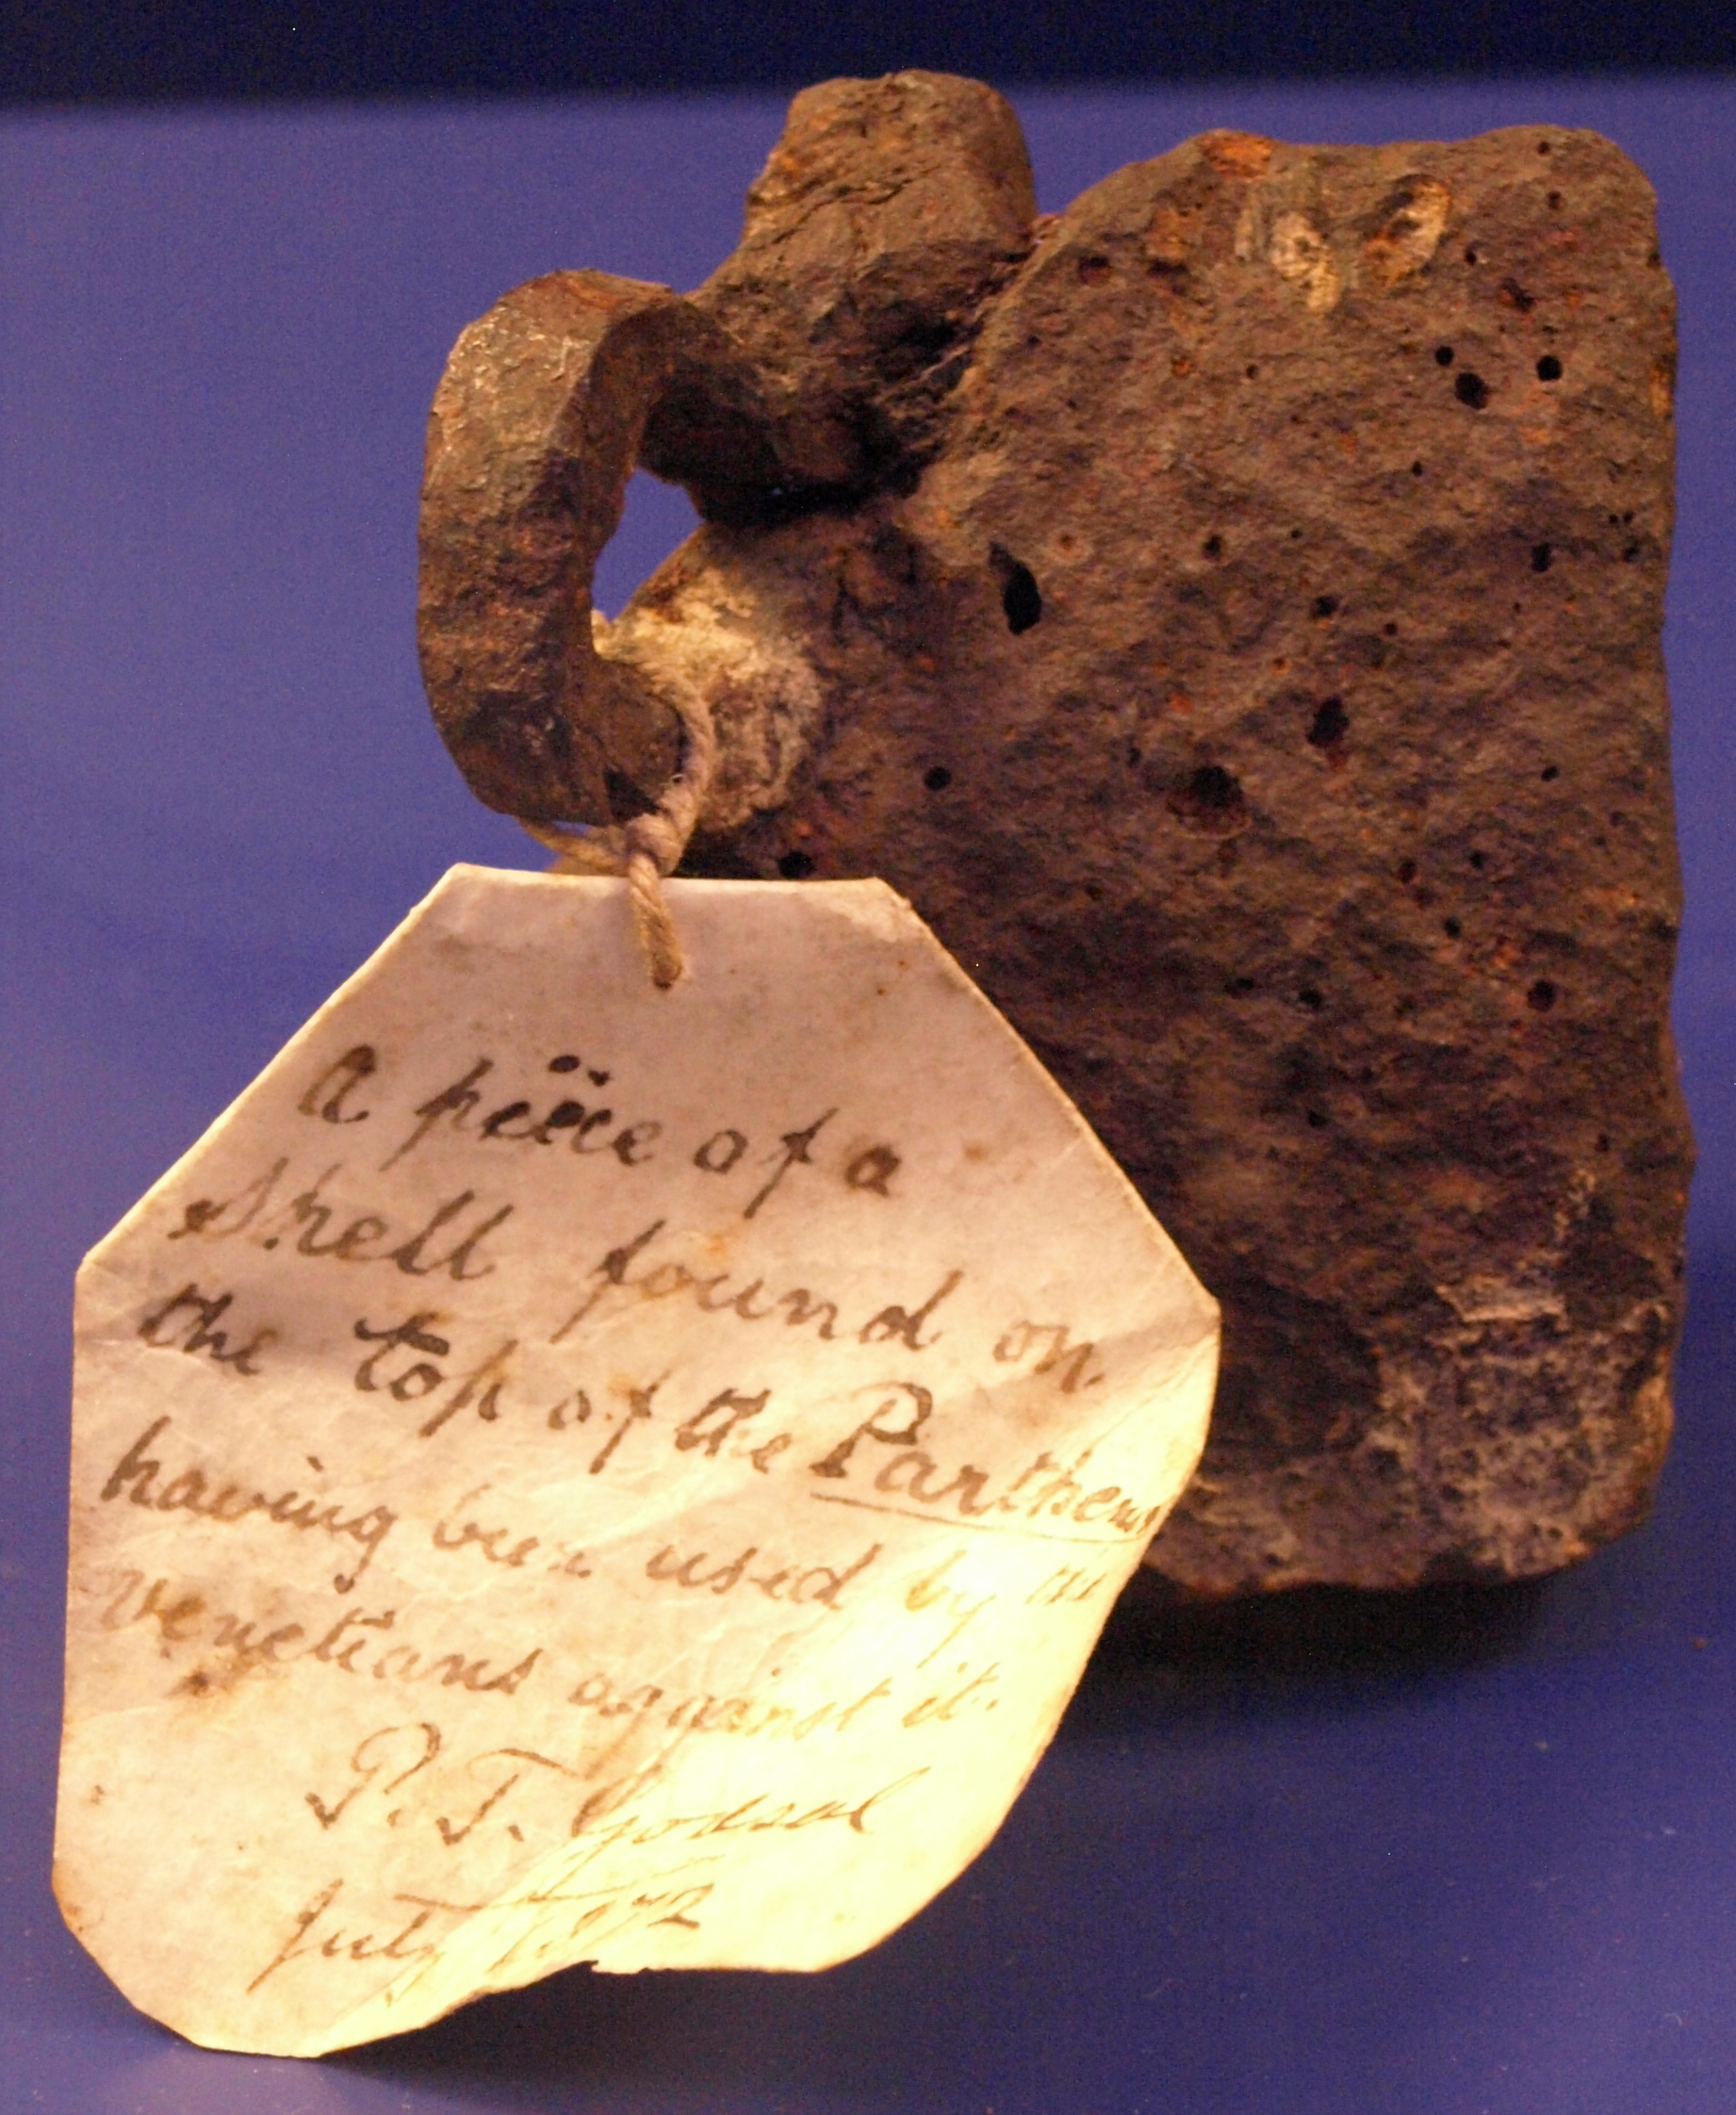 A peice of a
shell found on
the top of the Parthenon
having been used by the
venetians against it.
P. T. Godsal
July 1872